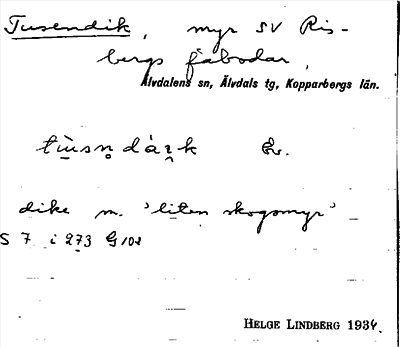 Tusendik, myr SV Ris-
bergs fäbodar,
Älvdalens sn, Älvdals tg, Kopparbergs län.
dike m. 'liten skogsmyr'
S 7 i 273
HELGE LINDBERG 1934.